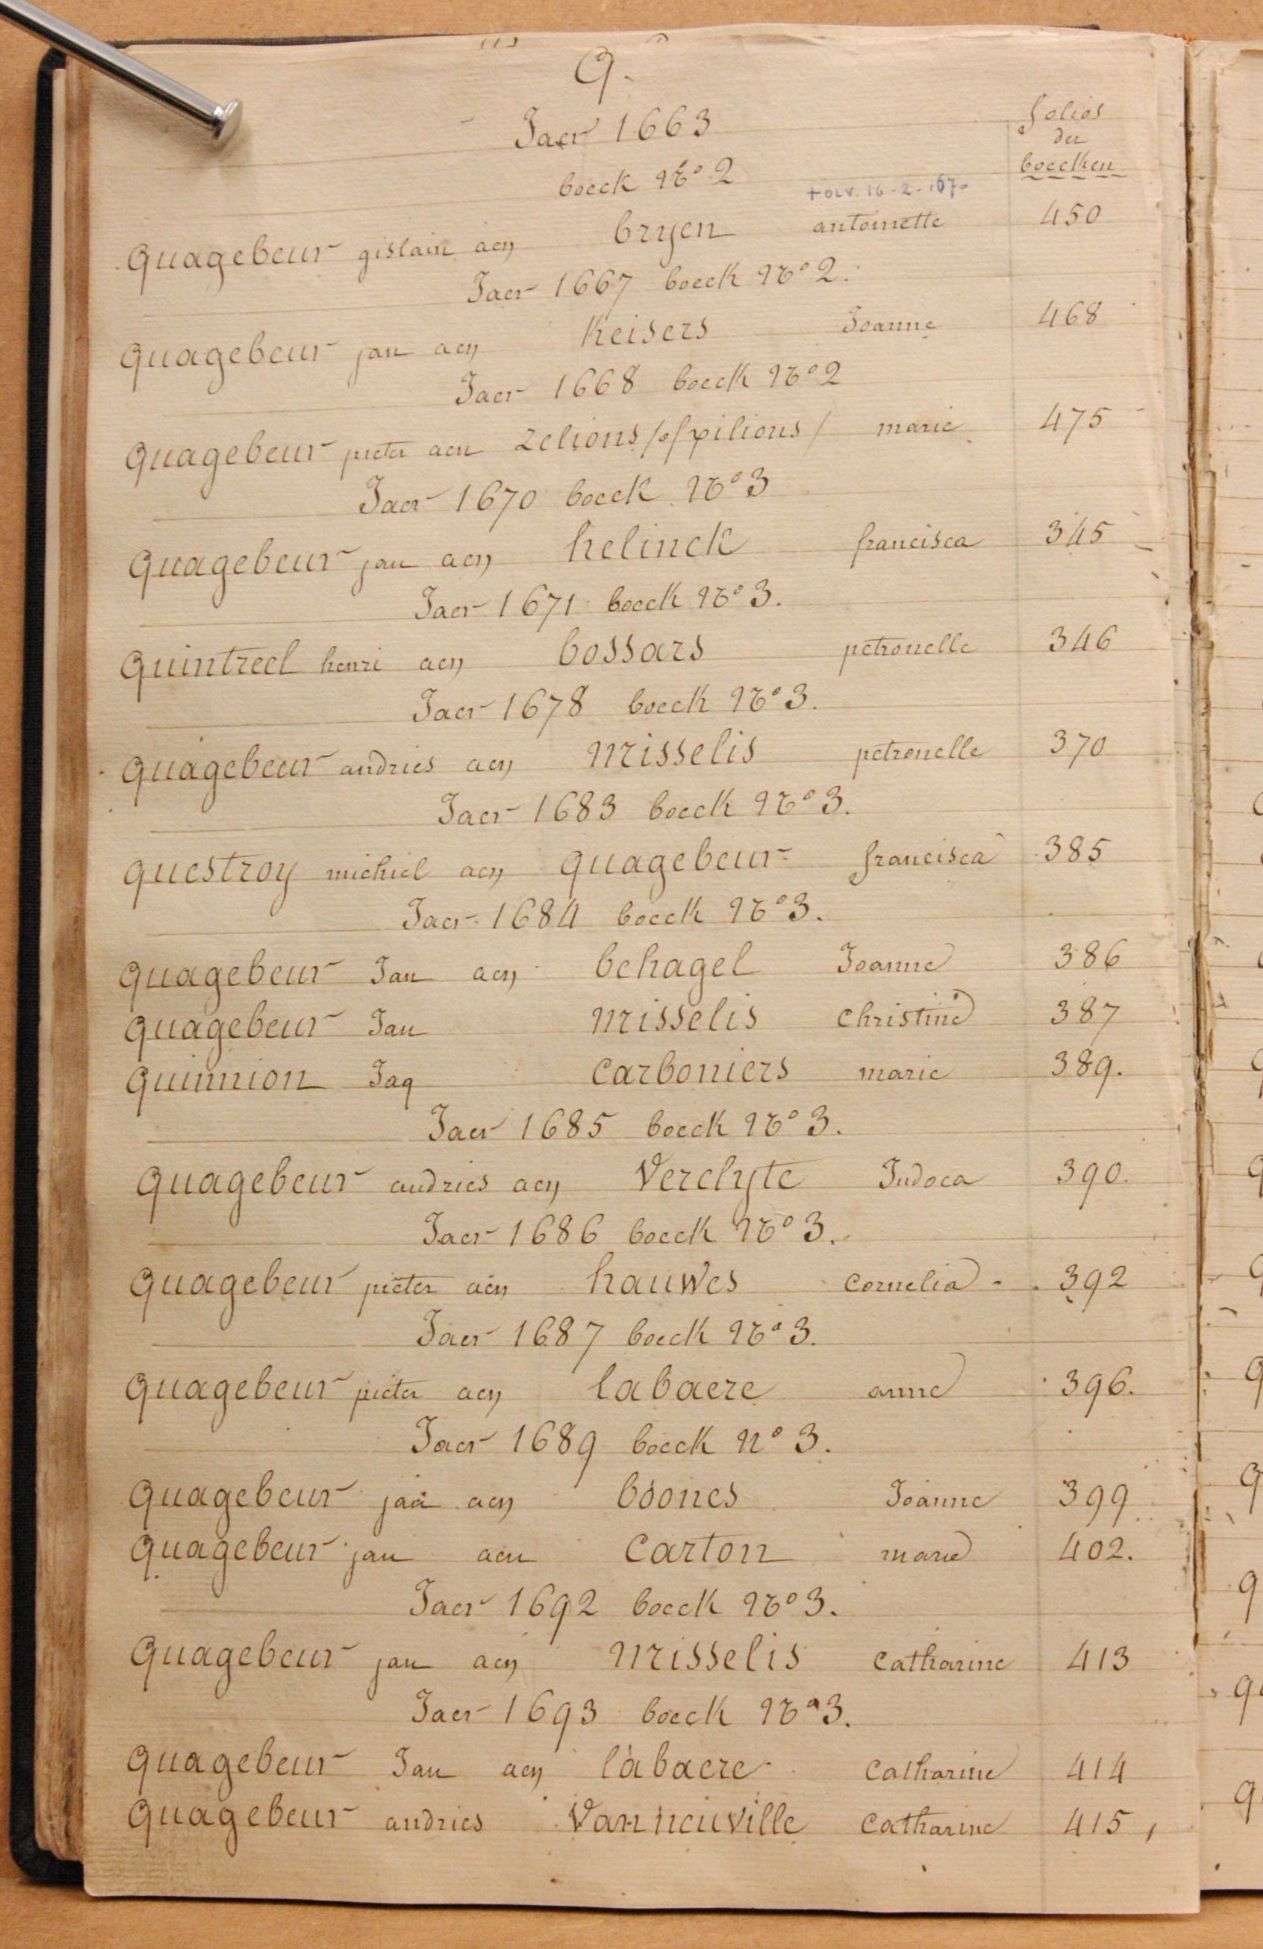 Q.
Jaer 1663
folios
der
boecken
boeck No 2
quagebeur gislain aen bryen antoinette 450
Jaer 1667 boeck No 2.
quagebeur jan aen keisers Joanne 468
Jaer 1668 boeck No 2
quagebeur pieter aen zelions /of pilions/ marie 475
Jaer 1670 boeck No 3
quagebeur jan aen helinck francisca 345
Jaer 1671 boeck No 3.
quintreel henri aen bossars petronelle 346
Jaer 1678 boeck No 3.
quagebeur andries aen misselis petronelle 370
Jaer 1683 boeck No 3.
questroy michiel aen quagebeur francisca 385
Jaer 1684 boeck No 3.
quagebeur Jan aen behagel Joanne 386
quagebeur Jan misselis christine 387
quinnion Jaq carboniers marie 389.
Jaer 1685 boeck No 3.
quagebeur andries aen Verclyte Judoca 390.
Jaer 1686 boeck No 3.
quagebeur pieter aen hauwes cornelia 392
Jaer 1687 boeck No 3.
quagebeur pieter aen labaere anne 396.
Jaer 1689 boeck no 3.
quagebeur jaa aen boones Joanne 399
quagebeur jan aen carton marie 402.
Jaer 1692 boeck No 3.
quagebeur jan aen misselis catharine 413
Jaer 1693 boeck No 3.
quagebeur Jan aen labaere catharine 414
quagebeur andries Vanneuville catharine 415